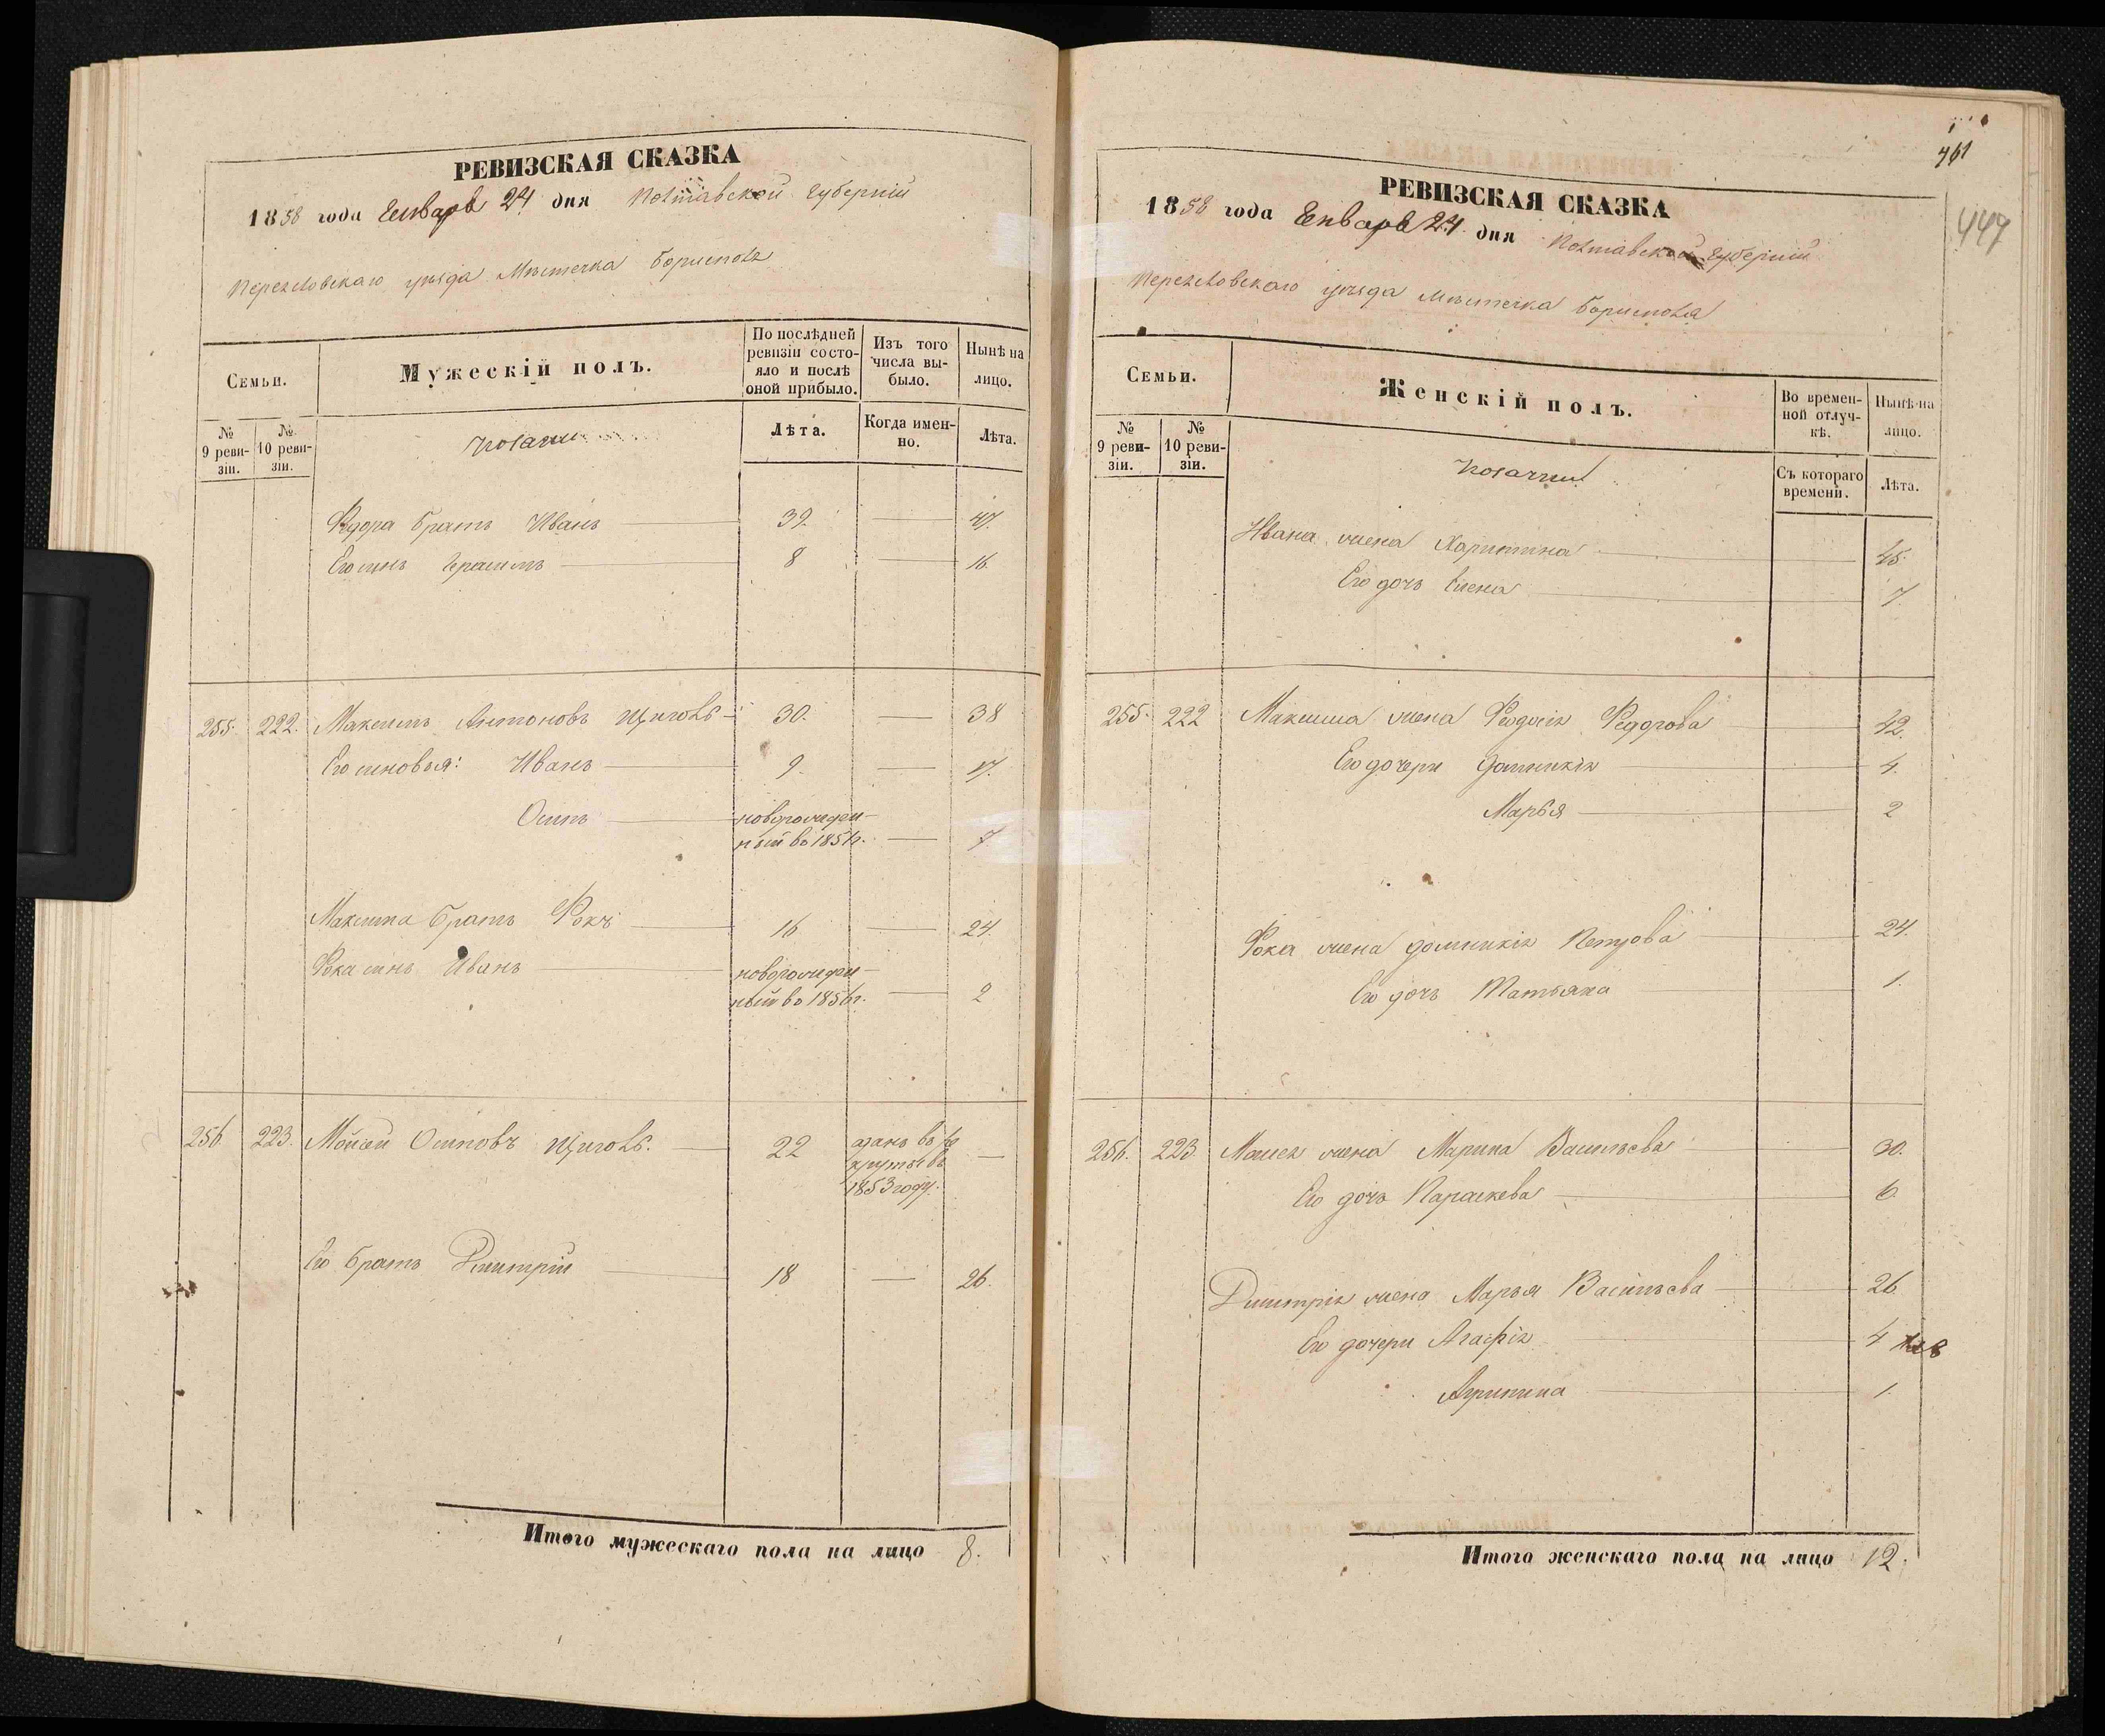 РЕВИЗСКАЯ СКАЗКА
1858 года Генваря 24 дня Полтавской Губерніи
Переяловскаго уѣзда Мѣстечка Борисполя
Семьи.
Мужескій полъ.
По послѣдней ревизіи состояло и послѣ оной прибыло.
Изъ того числа выбыло.
Нынѣ на лицо.
№ 9 ревизіи.
№ 10 ревизіи.
Козаки
Лѣта.
Когда именно.
Лѣта.
Ѳедора братъ Иванъ 39. 47.
Его сынъ Герасимъ 8 16.
255. 222. Максимъ Антоновъ Щиголь 30. 38
Его сыновья: Иванъ 9. 17.
Осипъ новорожден-
ный во 1851г. 7
Максима братъ Фокъ 16 24.
Фока сынъ Иванъ новорожден-
ный во 1856г. 2
256 223. Мойсей Осиповъ Щиголь. 22
въ
рекруты въ
1853 году.
Его братъ Дмитрій 18 26.
Итого мужескаго пола на лицо 8.
461
447
РЕВИЗСКАЯ СКАЗКА
1858 года Генваря 24 дня Полтавской Губерніи
Переяловскаго уѣзда Мѣстечка Борисполя
Семьи.
Женскій полъ.
Во временной отлучкѣ.
Нынѣ на лицо.
№ 9 ревизіи.
№ 10 ревизіи.
Козачки
Съ котораго времени.
Лѣта.
Ивана жена Харитина 45.
Его дочь Елена 7.
255. 222 Максима жена Феодосія Федорова 42.
Его дочери Домникія 4.
Марья 2
Фока жена Домникія Петрова 24.
Его дочь Татьяна 1.
256. 223. Моисея жена Марина Васильева 30.
Его дочь Параскева 6.
Дмитрія жена Марья Васильева 26
Его дочери Агафія 4
Агрипина 1.
Итого женскаго пола на лицо 12.